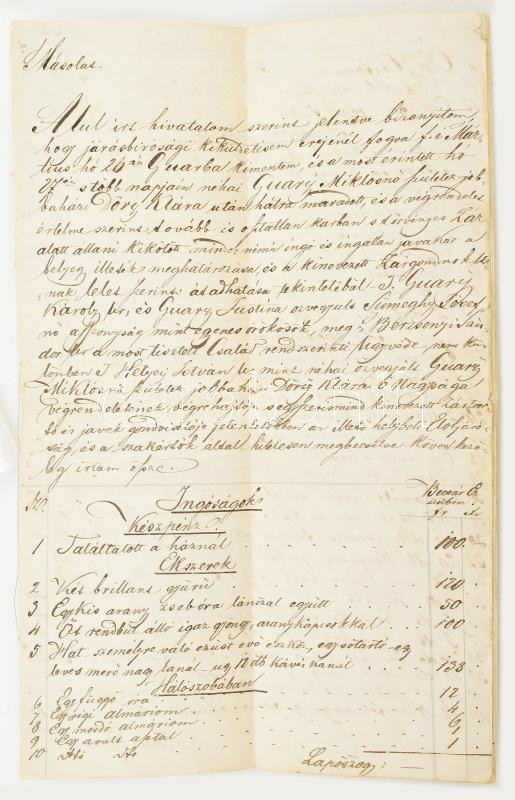 Másolat.
Alul irt hivatalom szerint jelentve bizonyitom,
hogy járásbirósági kiküldetésem erejénél fogva f. é. Már-
tius hó 26án Guarba kimentem, és a most érintett hó
27én s több napjain néhai Guary Miklosné született job-
baházi Döry Klára után hátra maradott, és a végrendelet
értelme szerint tovább is osztatlan karban s törvényes zár
alatt állani kikötött minden némü ingó és ingatlan javakat a
belyeg illeték meghatározása, és a kinevezett zárgondnok ur-
nak, leltár szerinti átadhatása tekintetéböl T. Guary
Károly ur, és Guary Justina özvegyült Sümeghy Józef
nő asszonyság mint egyenes örökösök, meg T. Berzsenyi Sán-
dor ur a most tisztelt Család rendszerinti Ügyvéde, nem kü-
lönben T. Helyei István ur mint néhai özvegyült Guary
Miklosné született jobbaházi Döry Klára ő Nagysága
végrendeletének végrehajtója s egyszersmind kinevezett zár tar-
tó és javak gondviselője jelenlétökben az illető helybeli Elöljáró-
ság, és a szakértők által hitelesen megbecsülve következő-
leg irtam össze.
No. Ingóságok Becsár Ez
üstben
Készpénz. fr xr
1 Találtatott a háznál 100 –
Ékszerek
2 Két brilliant gyürü 120
3 Egy kis arany zsebóra lánczal együtt 50
4 Öt rendbül álló igaz gyöngy, arany kapcsokkal 100
5 Hat személyre való ezüst evő eszköz, egy sótartó egy
leves merő nagy kanál ugy 12 db kávés kanál 138
Hálószobában
6 Egy függő óra 12
7 Egy régi almáriom 4
8 Egy mosdó almáriom 6
9 Egy avult asztal 1
10 dtó dto 1
Lapöszveg: –